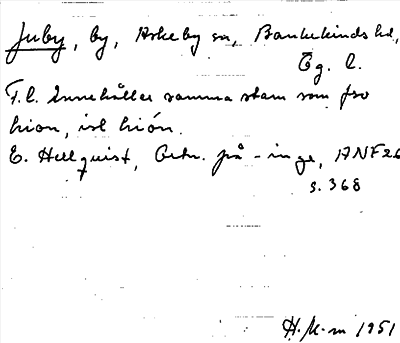 Juby, by, Askeby sn, Bankekinds hd,
Ög. l.
F.l. Innehåller samma stam som fsv
hion, isl hión.
E. Hellquist, Ortn. på -inge, ANF 26
s. 368
H. M-m 1951